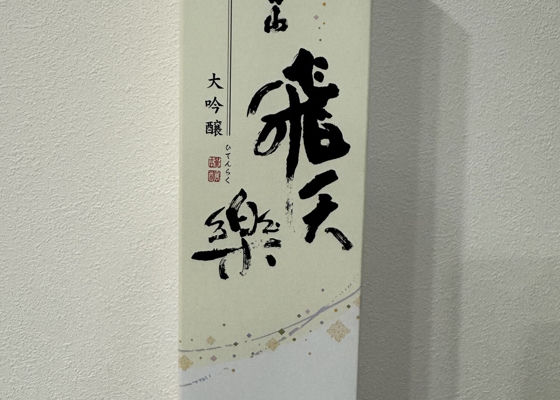 山
飛天
樂
大吟醸
ひてんらく